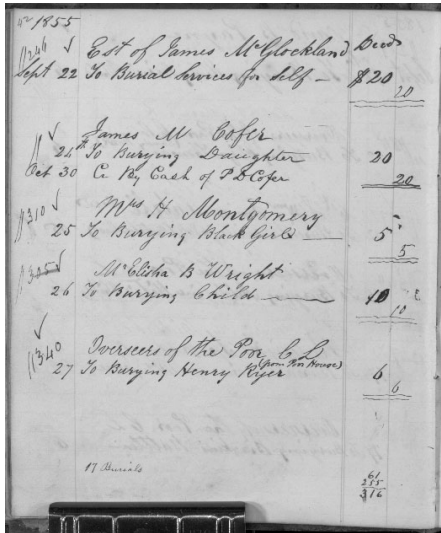 42 1855
1246 Est of James McGlockland Deeds
Sept 22 To Burial Services for Self — $20
20
James M Cofer
24 To Burying Daughter 20
Oct 30 Cr By Cash of P D Cofer 20
1310 Mrs H Montgomery
25 To Burying Black Girl — 5
5
1305 Mr Elisha B Wright
26 To Burying Child — 10
10
1340 Overseers of the Poor C L
27 To Burying Henry Ryer (from Poor House) 6
6
17 Burials
61
255
316